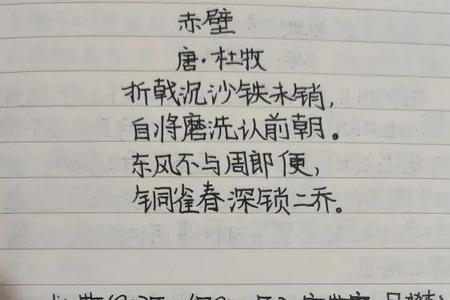 赤壁
唐·杜牧
折戟沉沙铁未销,
自将磨洗认前朝。
东风不与周郎便,
铜雀春深锁二乔。